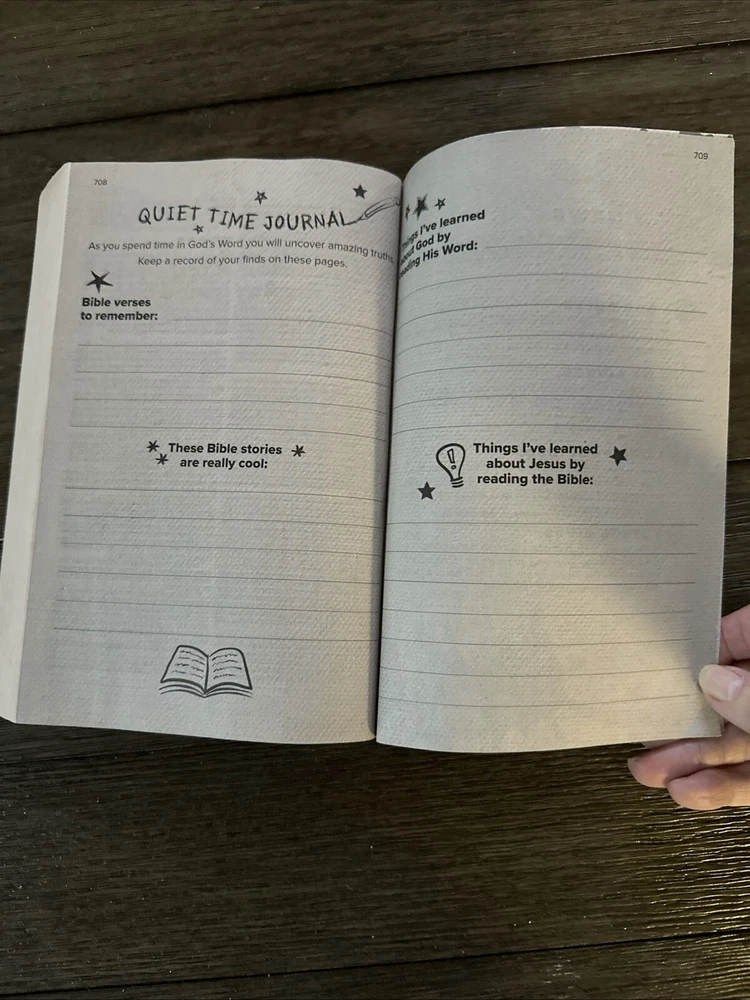 708
QUIET TIME JOURNAL
As you spend time in God's Word you will uncover amazing truths.
Keep a record of your finds on these pages.
Bible verses
to remember:
These Bible stories
are really cool:
709
Things I've learned
about God by
reading His Word:
Things I've learned
about Jesus by
reading the Bible: